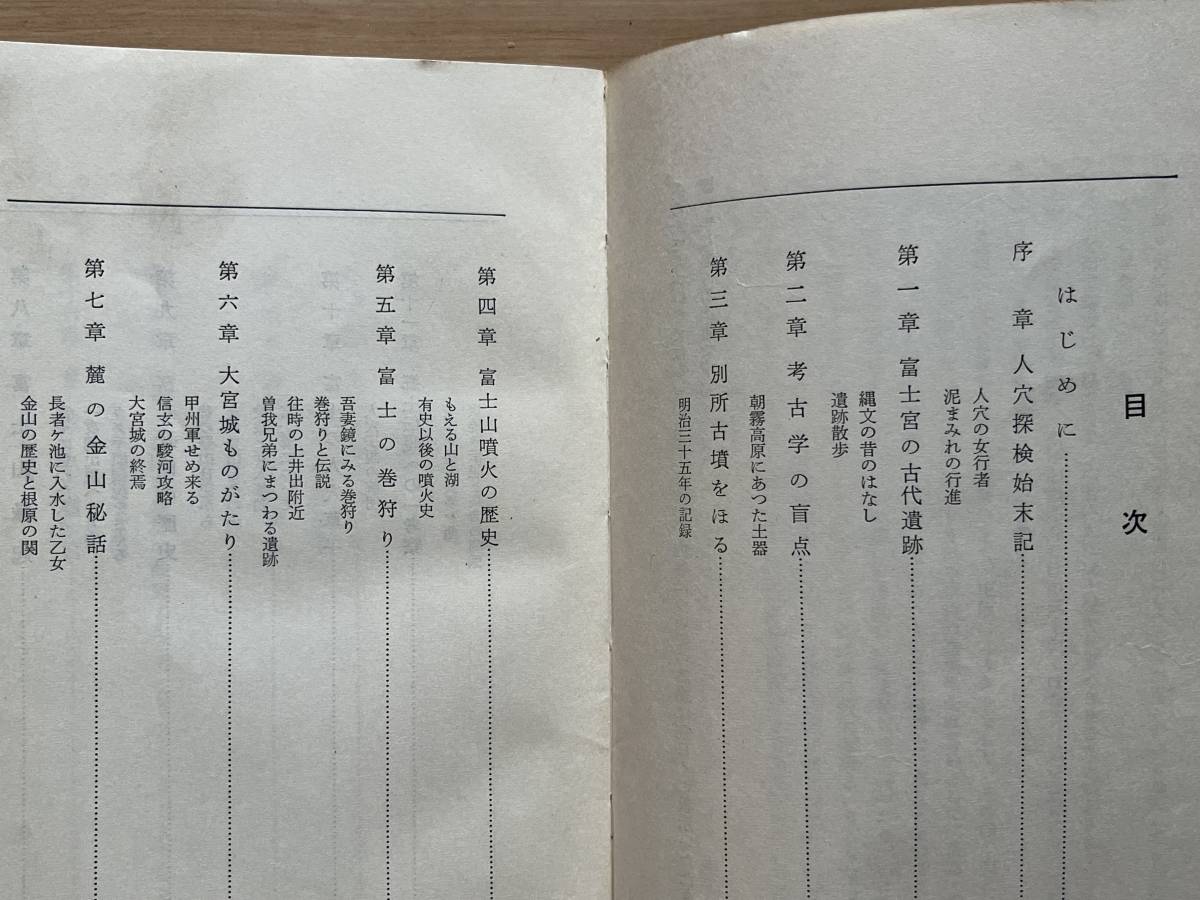 目次
はじめに
序章 人穴探検始末記
人穴の女行者
泥まみれの行進
第一章 富士宮の古代遺跡
縄文の昔のはなし
遺跡散歩
第二章 考古学の盲点
朝霧高原にあつた土器
第三章 別所古墳をほる
明治三十五年の記録
第四章 富士山噴火の歴史
もえる山と湖
有史以後の噴火史
第五章 富士の巻狩り
吾妻鏡にみる巻狩り
巻狩りと伝説
往時の上井出附近
曽我兄弟にまつわる遺跡
第六章 大宮城ものがたり
甲州軍せめ来る
信玄の駿河攻略
大宮城の終焉
第七章 麓の金山秘話
長者ケ池に入水した乙女
金山の歴史と根原の関